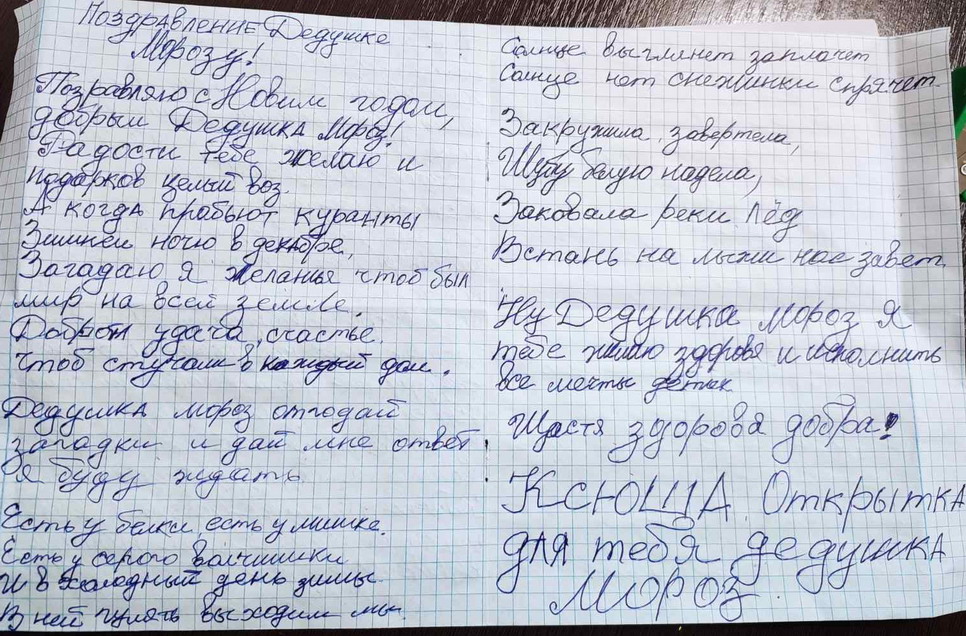 Поздравление Дедушке
Морозу!
Позравляю с Новим годом,
добрый Дедушка Мороз!
Радости тебе желаю и
подарков целый воз.
А когда прабьют куранты
Зимней ночю в декабре,
Загадаю я желанье чтоб был
мир на всей земле.
удача, счастье.
чтоб стучали в каждый дом.
Дедушка мороз отгодай
загадки и дай мне ответ
я буду ждать
Есть у белки есть у мишке.
Есть у серого волчишки
И в холодный день зимы
В ней гулять выходим мы.
Солнце выглянет заплачет
Солнце нет снежинки спрячет.
Закружила, завертела,
Шубу белую надела,
Заковала реки Лёд
Встань на лыжи нас завет.
Ну Дедушка мороз Я
тебе жилаю здоровя и исполнить
все мечты деток
Щастя здорова добра!
Ксюша Открытка
для тебя дедушка
Мороз